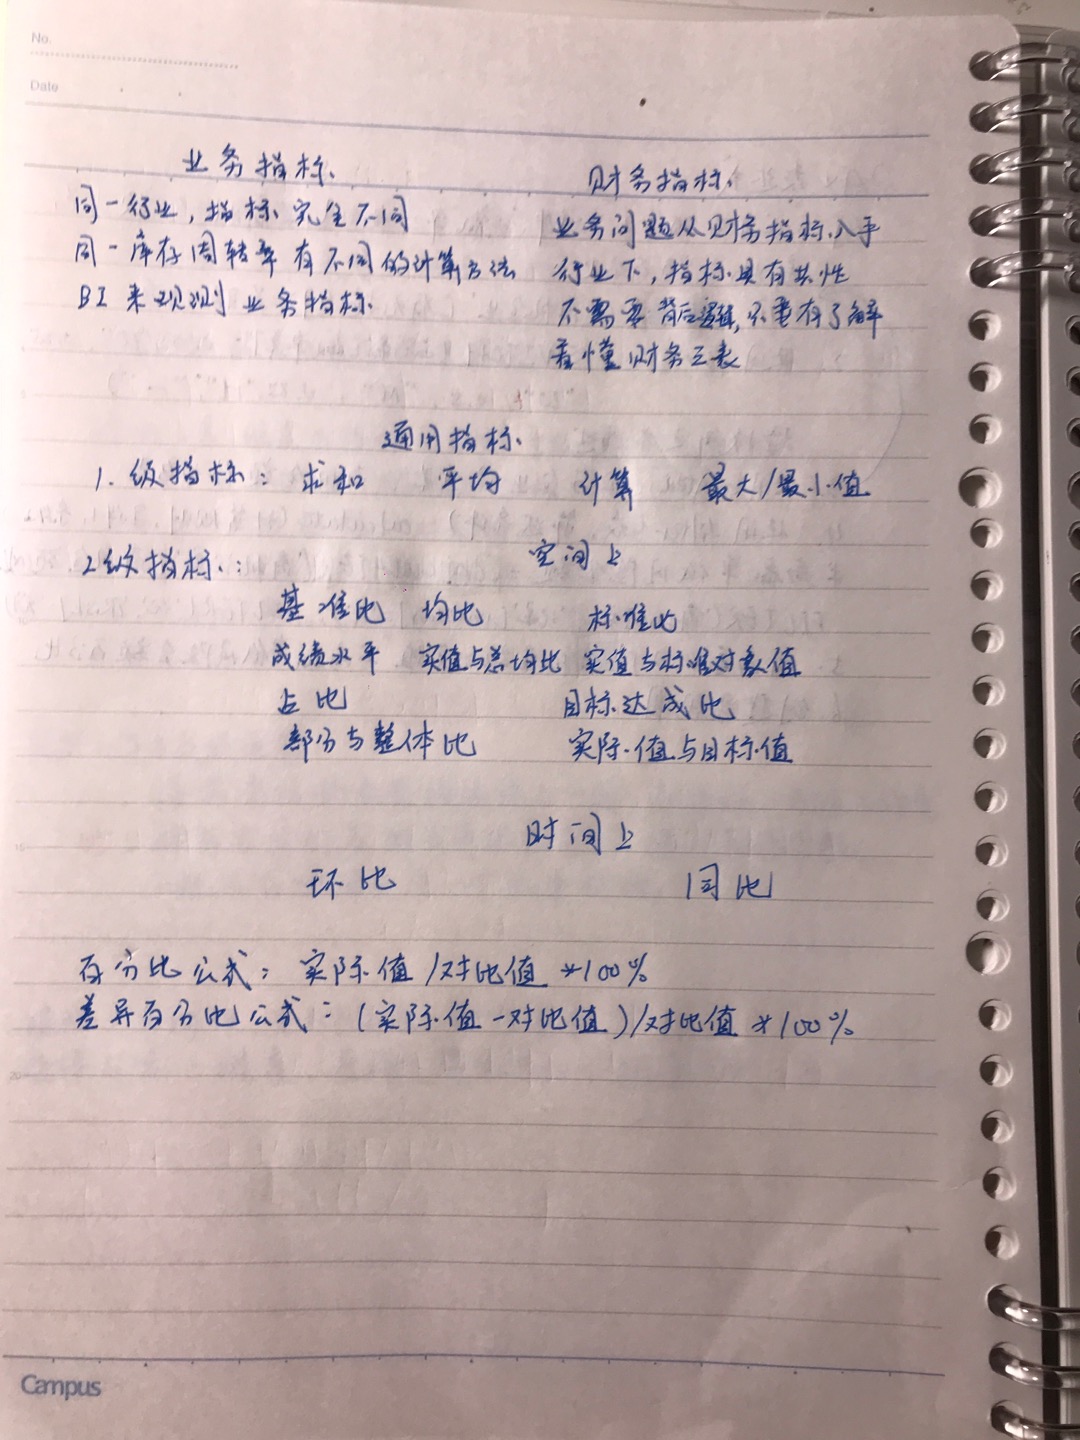 No.
Date
业务指标
同一行业,指标完全不同
同一库存周转率有不同的计算方法
BI来观测业务指标
财务指标
业务问题从财务指标入手
行业下,指标具有共性
不需要背后逻辑,只要有了解
看懂财务三表
通用指标
1.级指标: 求和 平均 计算 最大/最小值
2级指标: 空间上
基准比 均比 标准比
成绩水平 实值与总均比 实值与标准对象值
占比 目标达成比
部分与整体比 实际值与目标值
时间上
环比 同比
百分比公式: 实际值/对比值*100%
差异百分比公式:(实际值-对比值)/对比值*100%
15
20
Campus